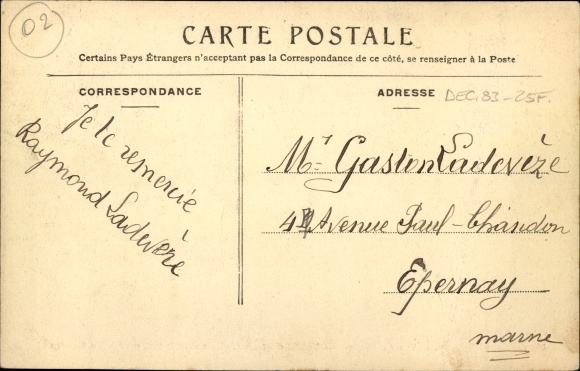 02
CARTE POSTALE
Certains Pays Étrangers n'acceptant pas la Correspondance de ce côté, se renseigner à la Poste
CORRESPONDANCE
Je te remercie
Raymond Ladevèze
ADRESSE
DEC. 83 - 25F.
Mr Gaston Ladevèze
Avenue Paul-Chandon
Epernay
marne